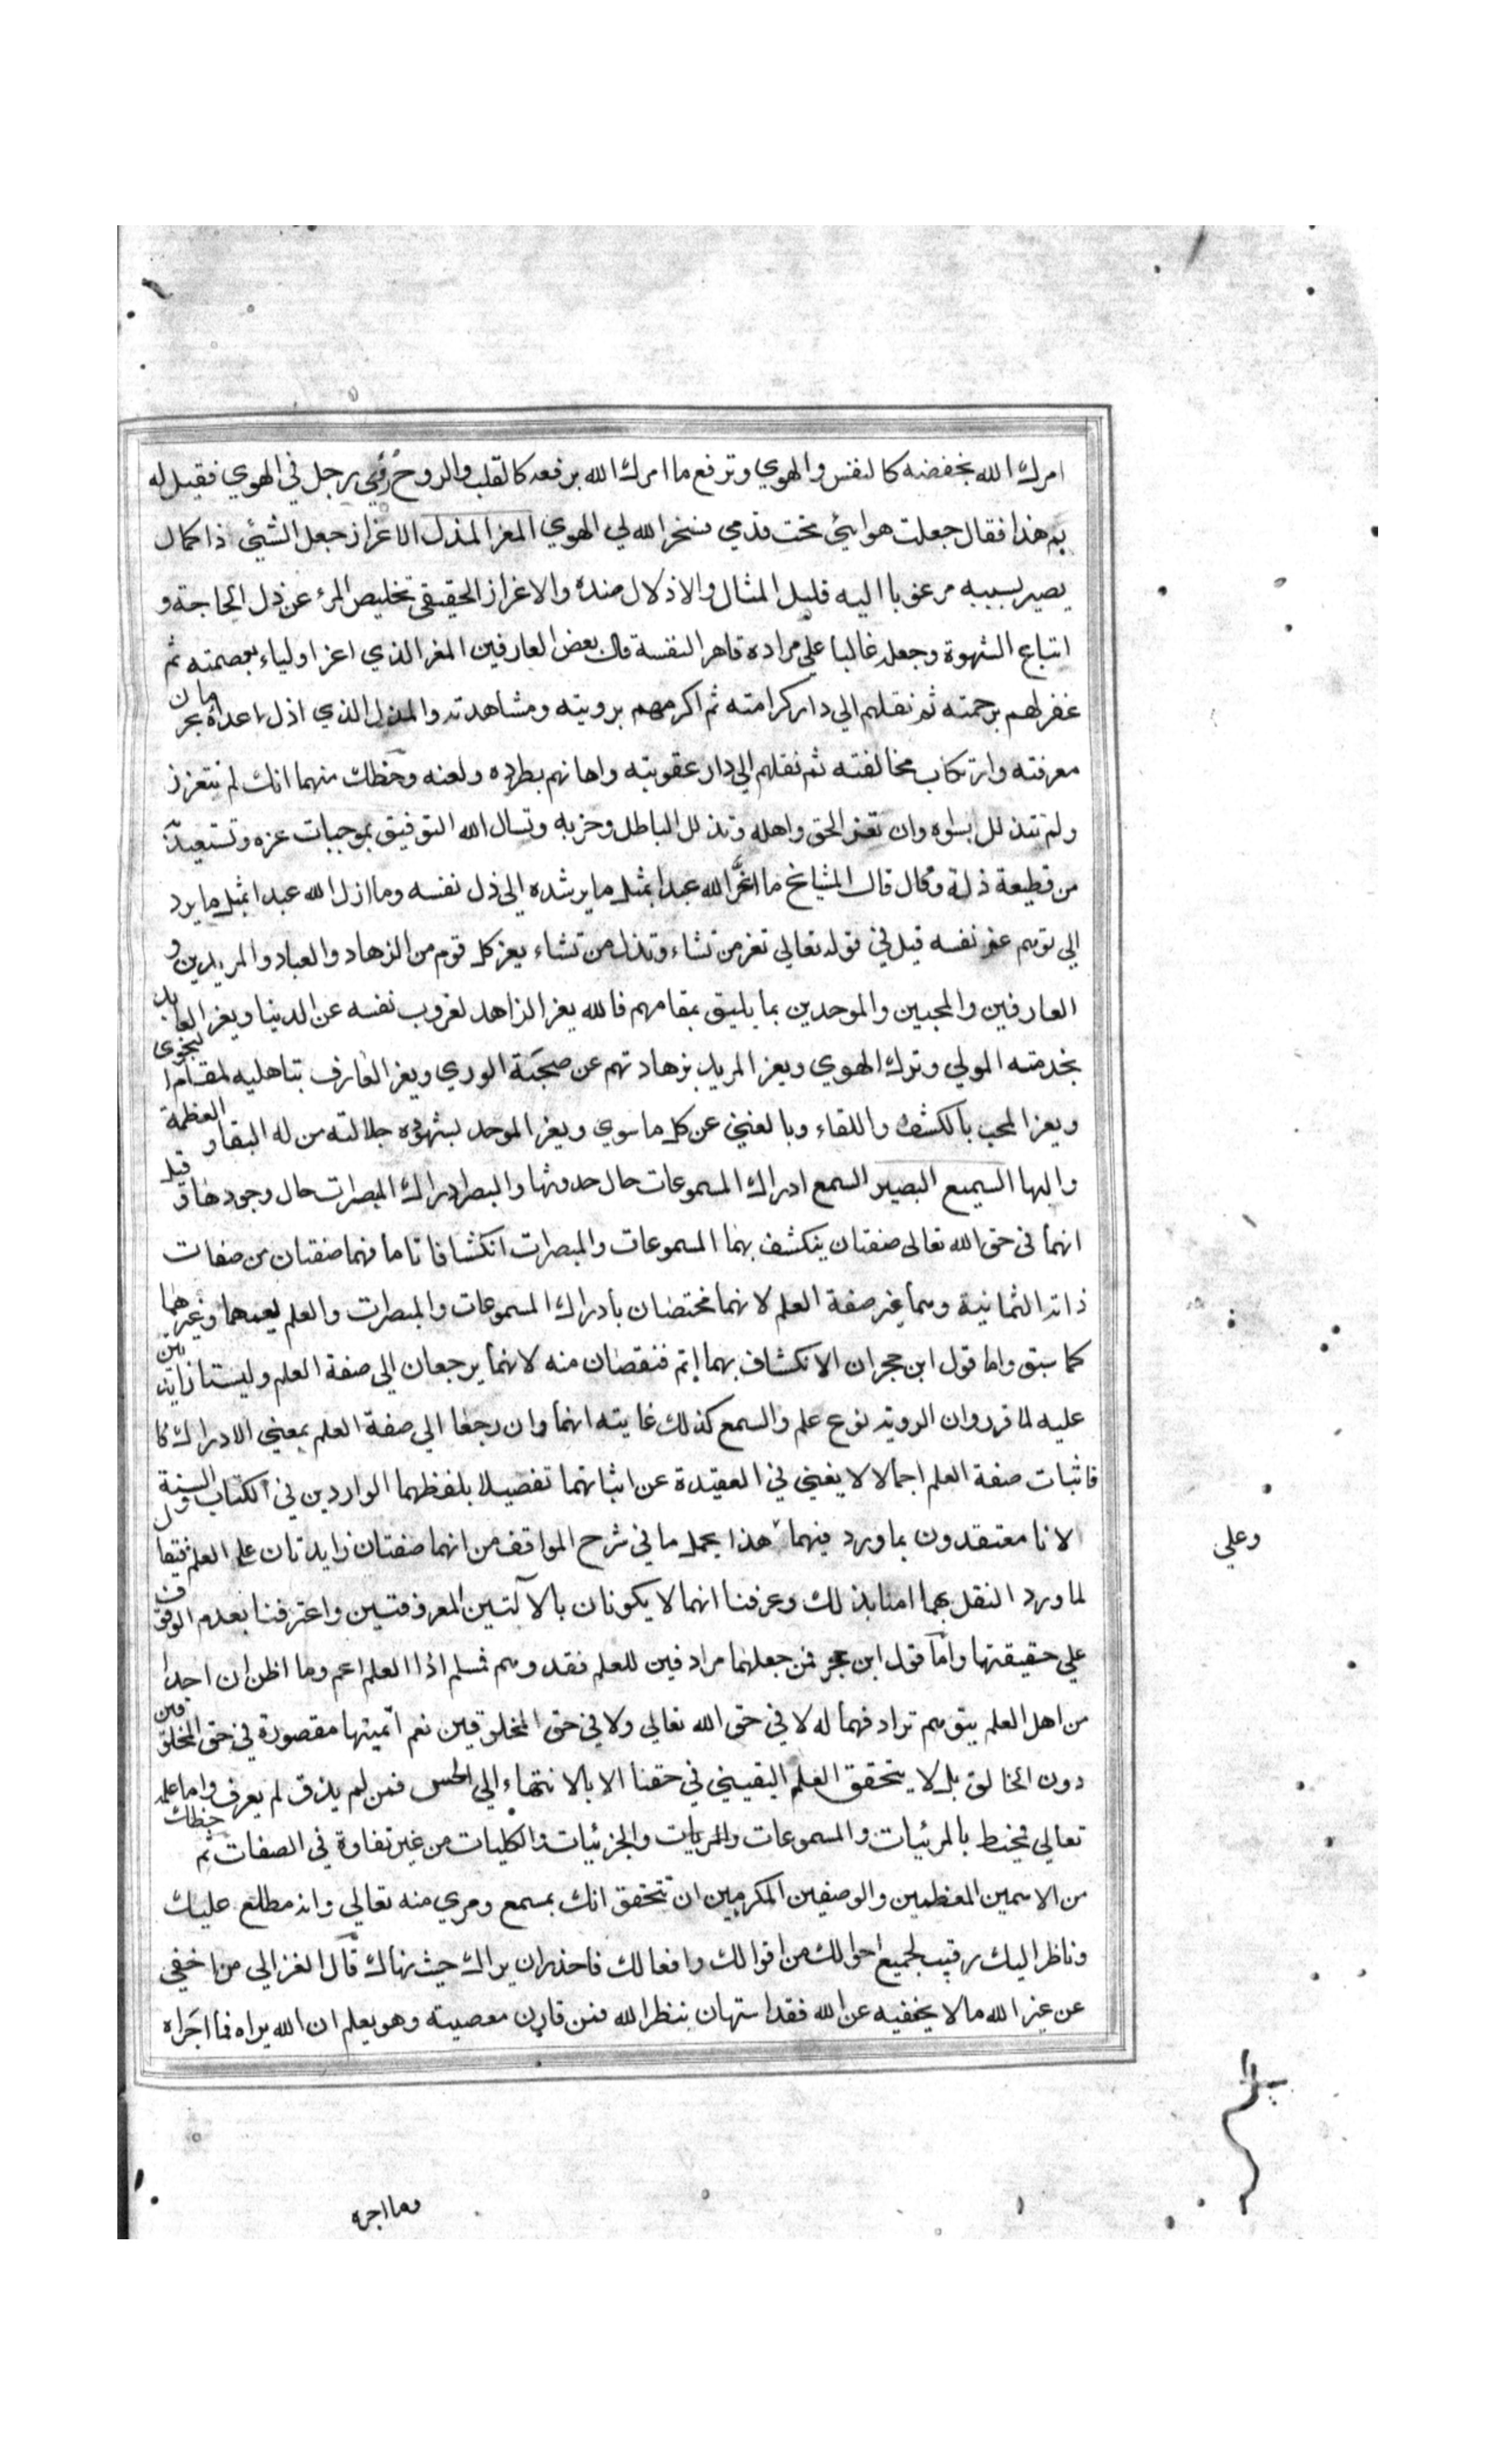 امرك الله بخفضه كالنفس والهوي وترفع ما امرك الله برفعه كالقلب والروح رؤي رجل في الهوي فقيل له
بم هذا فقال جعلت هوايئ تحت قدمي فسخر الله لي الهوي المعز المذل الاعزاز جعل الشيئ ذا كمال
يصير بسببه مرغوبا اليه قليل المثال والاذلال ضده والاعزاز الحقيقي تخليص المرء عن ذل الحاجة و
اتباع الشهوة وجعله غالبا علي مراده قاهر النفسه قال بعض العارفين المعز الذي اعز اولياء بعصمته ثم
غفر لهم برحمته ثم نقلهم الي دار كرامته ثم اكرمهم برويته ومشاهدته والمذل الذي اذل اعداه بحرمان
معرفته وارتكاب مخالفته ثم نقلهم الي دار عقوبته واهانهم بطرده ولعنه وحظك منهما انك لم تتعزز
ولم تتذلل بسواه وان تعز الحق واهله وتذلل الباطل وحزبه وتسال الله التوفيق بموجبات عزه وتستعيذ
من قطيعة ذلة وقال المشايخ ما اعز الله عبدا بمثل ما يرشده الي ذل نفسه وما اذل الله عبدا بمثل ما يرد
الي توهم عز نفسه قيل في قوله تعالي تعز من تشاء وتذل من تشاء يعز كل قوم من الزهاد والعباد والمريدين و
العارفين والمحبين والموحدين بما يليق بمقامهم فالله يعز الزاهد لغروب نفسه عن الدنيا ويعز العابد
بخدمته المولي وترك الهوي ويعز المريد بزهادتهم عن صحبة الوري ويعز العارف بتاهليه لمقام النجوي
ويعز المحب بالكشف واللقاء وبالغني عن كل ما سوي ويعز الموحد بشهوده جلالته من له البقا والعظمة
والبها السميع البصير السمع ادراك المسموعات حال حدوثها والبصر ادراك المبصرات حال وجودها وقيل
انهما في حق الله تعالي صفتان ينكشف بهما المسموعات والمبصرات انكشافا تاما فهما صفتان من صفات
ذاته الثمانية وهما غير صفة العلم لانهما مختصان بادراك المسموعات والمبصرات والعلم يعمهما وغيرهما
كما سبق واما قول ابن حجر ان الانكشاف بهما اتم فنقصان منه لانهما يرجعان الي صفة العلم وليستا زايدتين
عليه لما قرروان الروية نوع علم والسمع كذلك غايته انهما وان رجعا الي صفة العلم بمعني الادراك
فاثبات صفة العلم اجمالا لا يغني في العقيدة عن اثباتهما تفصيلا بلفظهما الواردين في الكتاب والسنة
لانا معتقدون بما ورد فيهما هذا يحمل ما في شرح المواقف من انهما صفتان زايدتان علي العلم فيقال
لما ورد النقل بهما امنا بذلك وعرفنا انهما لا يكونان بالآلتين المعروفتين واعترفنا بعدم الوقوف
علي حقيقتها واما قول ابن حجر فمن جعلهما مرادفين للعلم فقد وهم فسلم اذ العلم اعم وما اظن ان احدا
من اهل العلم يتوهم ترادفهما له لا في حق الله تعالي ولا في حق المخلوقين نعم اتميتها مقصورة في حق المخلوقين
دون الخالق بل لا يتحقق العلم اليقيني في حقنا الا بالانتهاء الي الحس فمن لم يذق لم يعرف واما علمه
تعالي فمحيط بالمرئيات والمسموعات والمريات والجزئيات والكليات من غير تفاوة في الصفات ثم حظك
من الاسمين المعظمين والوصفين المكرمين ان تتحقق انك بمسمع ومري منه تعالي وانه مطلع عليك
وناظر اليك رقيب لجميع احوالك من اقوالك وافعالك فاحذر ان يراك حيث نهاك قال الغزالي من اخفي
عن غير الله ما لا يخفيه عن الله فقد استهان بنظر الله فمن قارن معصيته وهو يعلم ان الله يراه فما اجراه
وعلي
وما اجره